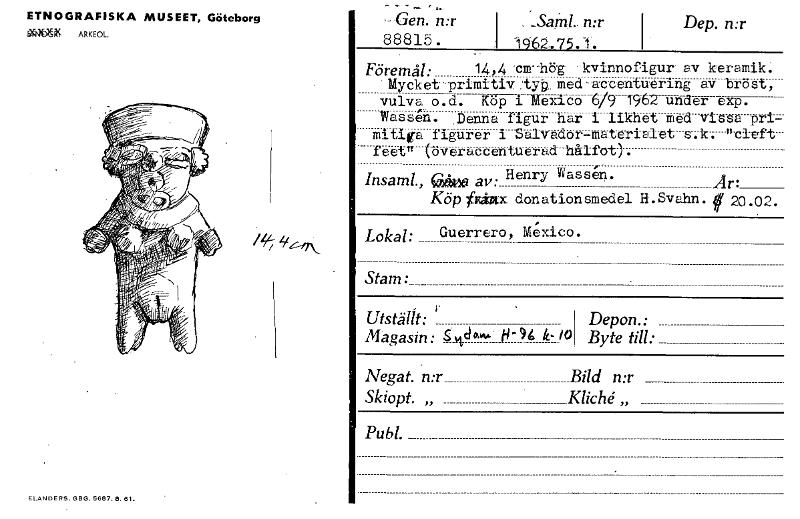 ETNOGRAFISKA MUSEET, Göteborg
ARKEOL.
14,4 cm
ELANDERS. GBG. 5687. 8. 61.
Gen. n:r Saml. n:r Dep. n:r
88815. 1962.75.1.
Föremål: 14,4 cm hög kvinnofigur av keramik.
Mycket primitiv typ med accentuering av bröst,
vulva o.d. Köp i Mexico 6/9 1962 under exp.
Wassén. Denna figur har i likhet med vissa pri-
mitiga figurer i Salvador-materialet s.k. "cleft
feet" (överaccentuerad hålfot).
Insaml., av: Henry Wassén. År:
Köp donationsmedel H.Svahn. 20.02.
Lokal: Guerrero, México.
Stam:
Utställt: Depon.:
Magasin: Sydam H-96 k-10 Byte till:
Negat. n:r Bild n:r
Skiopt. „ Kliché „
Publ.